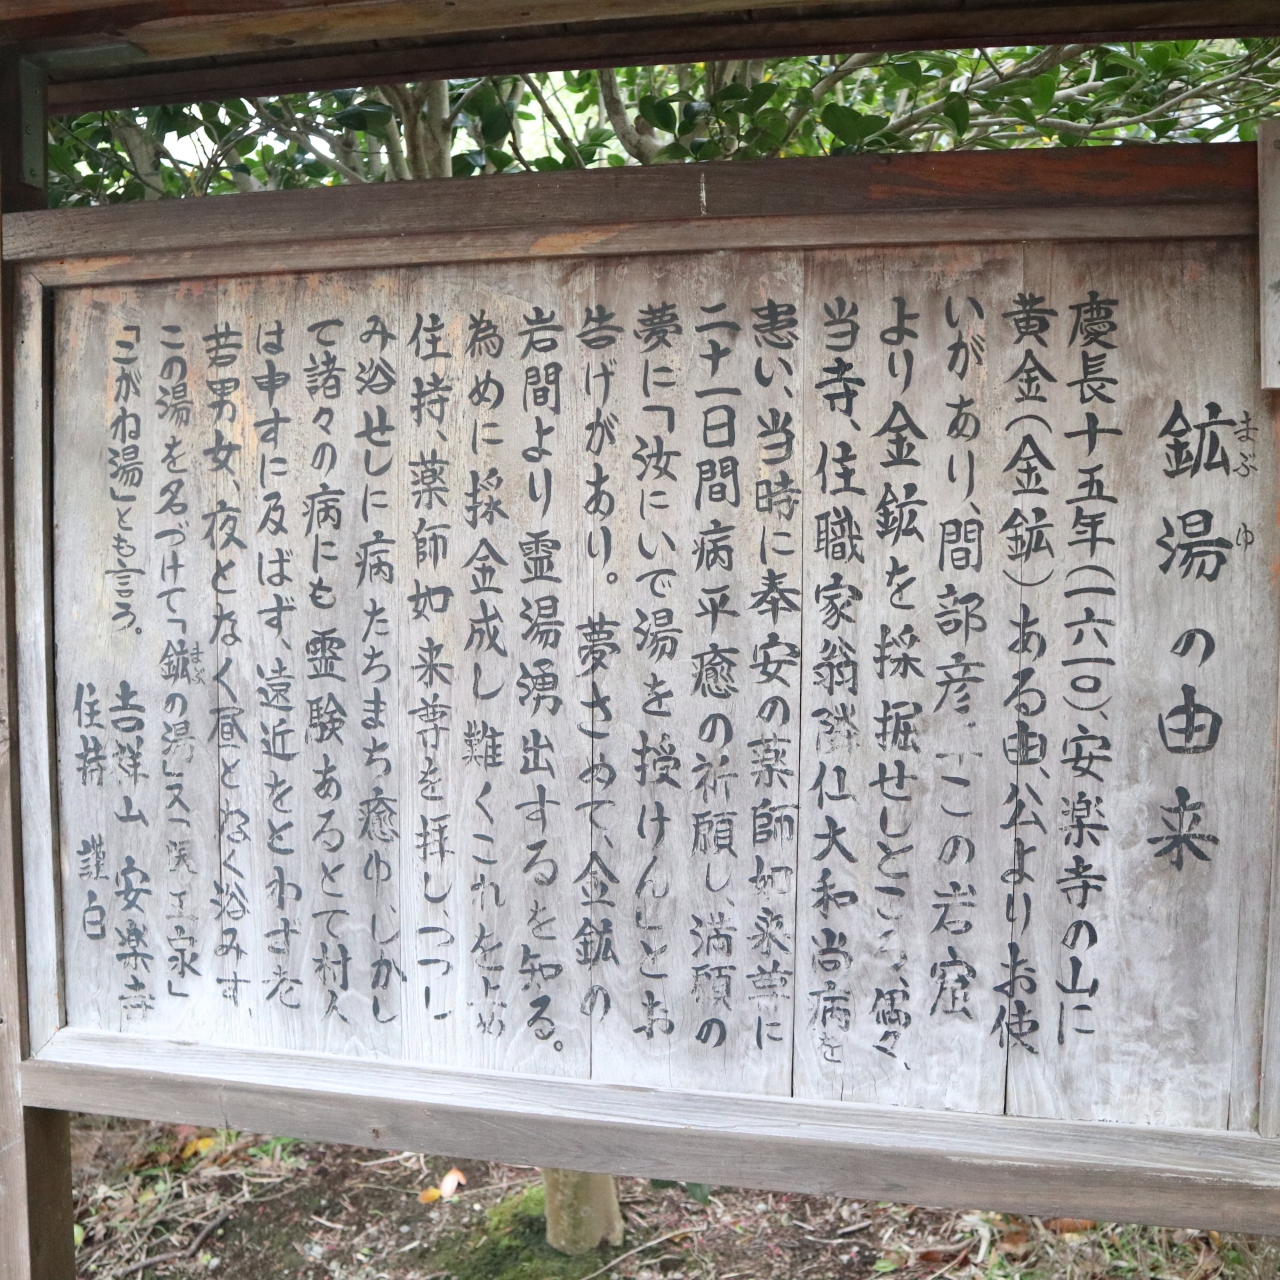 鉱湯の由来
まぶ ゆ
慶長十五年(一六一〇)、安楽寺の山に
黄金(金鉱)ある由、公よりお使
いがあり、間部彦 この岩窟
より金鉱を採掘せしところ、偶々、
当寺、住職家翁隣仙大和尚病を
患い、当時に奉安の薬師如来尊に
二十一日間病平癒の祈願し、満願の
夢に「汝にいで湯を授けん」とお
告げがあり。夢さめて、金鉱の
岩間より霊湯湧出するを知る。
為めに採金成し難くこれを止め
住持、薬師如来尊を拝し、つつし
み浴せしに病たちまち癒ゆ しかし
て諸々の病にも霊験あるとて村人
は申すに及ばず、遠近をとわず老
若男女、夜となく昼となく浴みす、
この湯を名づけて「鉱の湯」又「医王泉」
まぶ
「こがね湯」とも言う。
吉祥山 安楽寺
住持 謹白